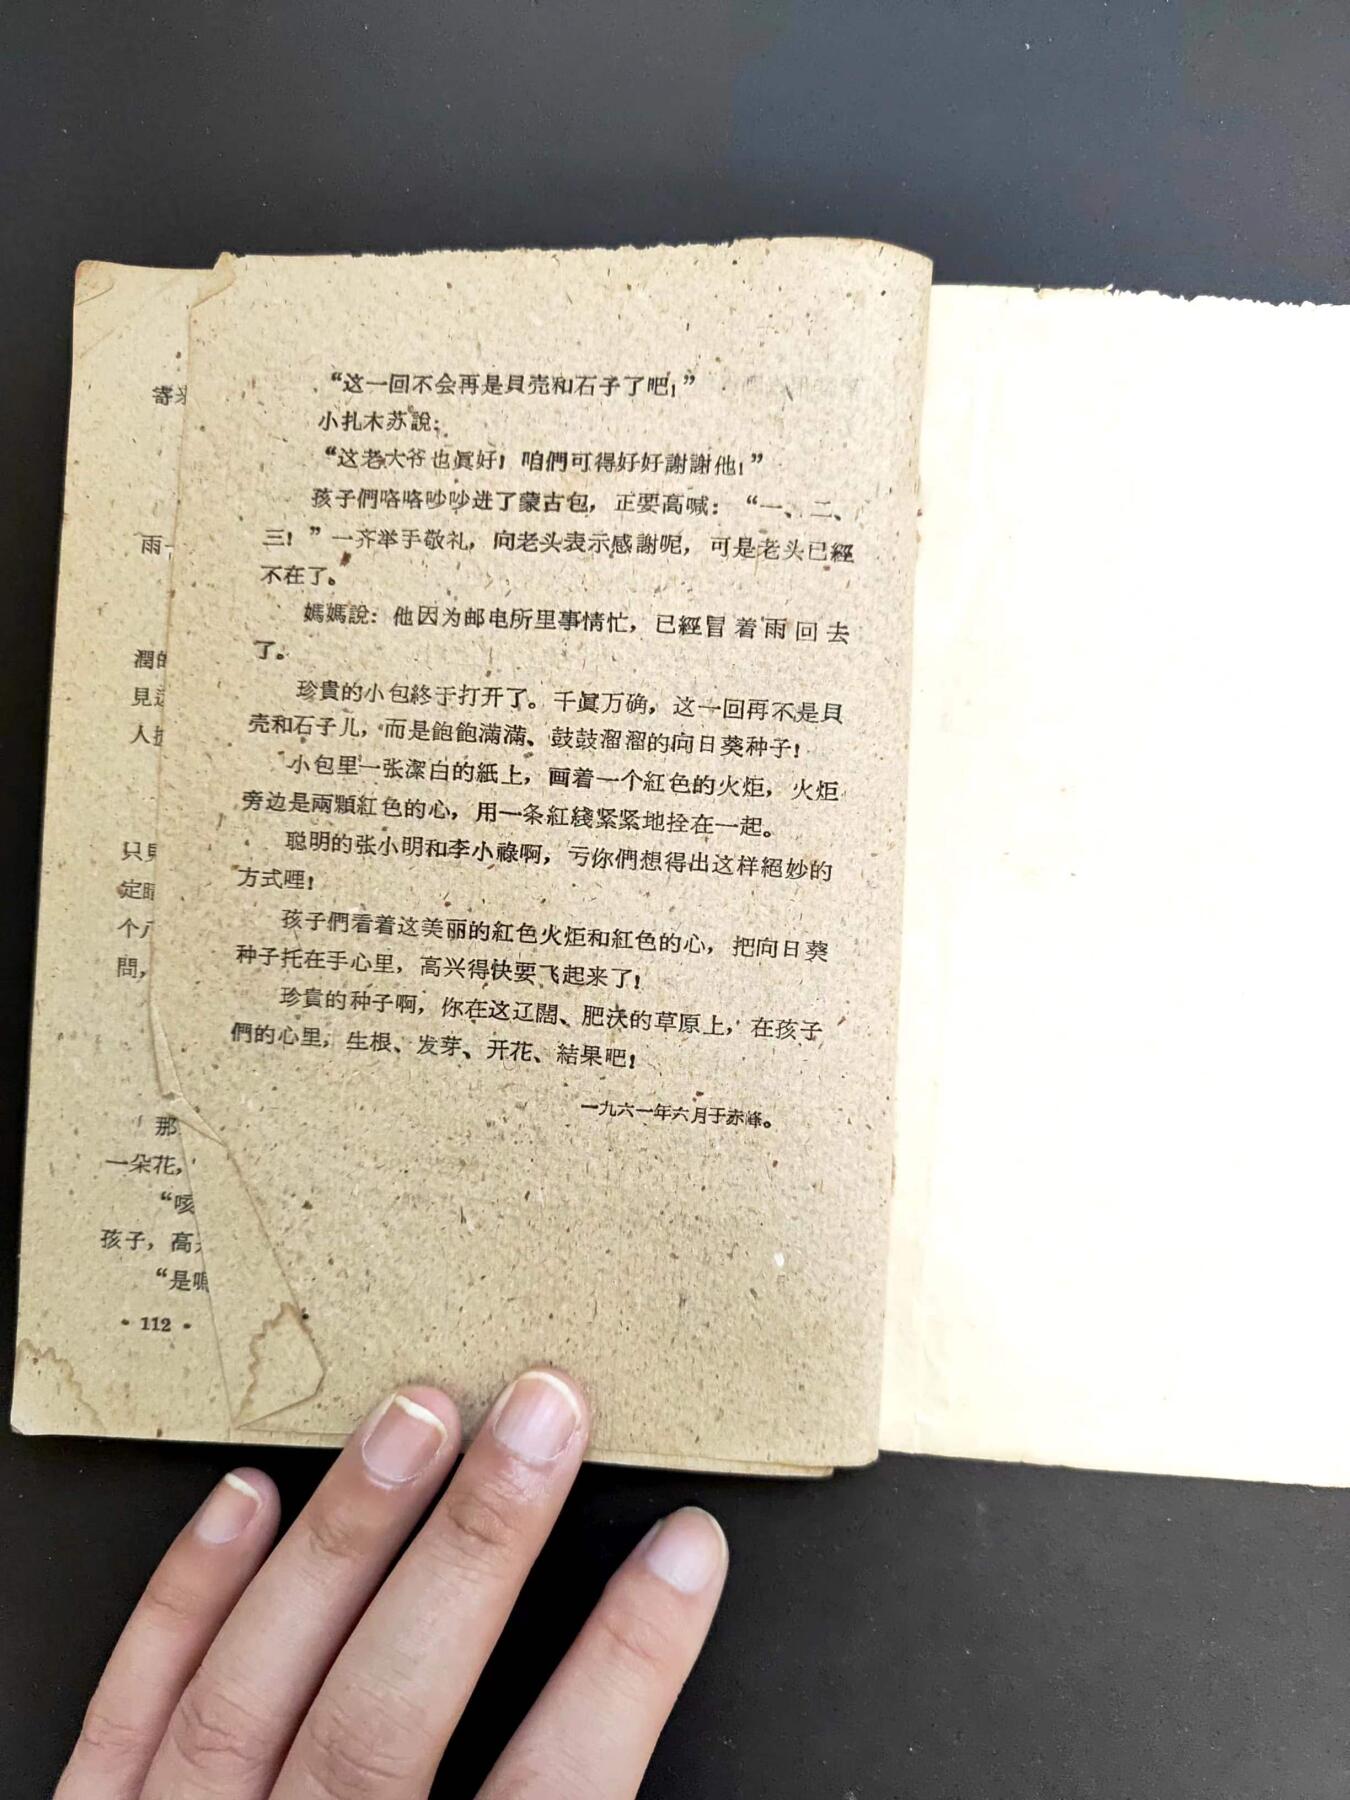 “这一回不会再是貝壳和石子了吧！”
小扎木苏說：
“这老大爷也眞好！咱們可得好好謝謝他！”
孩子們咯咯吵吵进了蒙古包，正要高喊：“一、二、
三！”一齐举手敬礼，向老头表示感謝呢，可是老头已經
不在了。
媽媽說：他因为邮电所里事情忙，已經冒着雨回去
了。
珍貴的小包終于打开了。千眞万确，这一回再不是貝
壳和石子儿，而是飽飽滿滿、鼓鼓溜溜的向日葵种子！
小包里一张潔白的紙上，画着一个紅色的火炬，火炬
旁边是兩顆紅色的心，用一条紅綫紧紧地拴在一起。
聪明的张小明和李小祿啊，亏你們想得出这样絕妙的
方式哩！
孩子們看着这美丽的紅色火炬和紅色的心，把向日葵
种子托在手心里，高兴得快要飞起来了！
珍貴的种子啊，你在这辽闊、肥沃的草原上，在孩子
們的心里，生根、发芽、开花、結果吧！
一九六一年六月于赤峰。
寄来
雨
潤的
見这
人
只見
定睛
个
問，
那
一朵花，
“咳
孩子，高
“是嗎
• 112 •